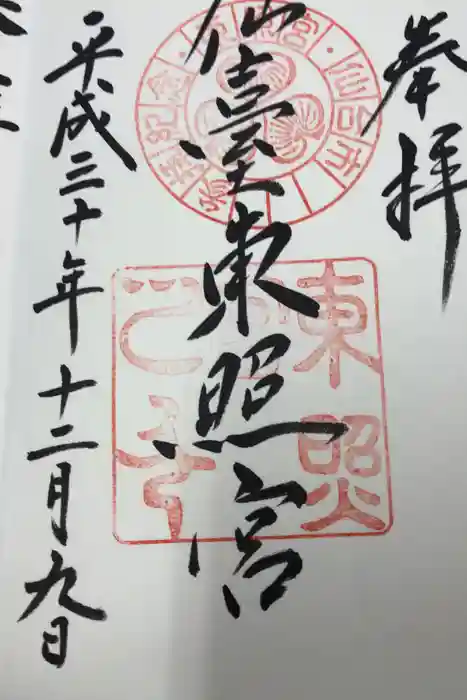 奉拝
仙臺東照宮
平成三十年十二月九日
東照
仙台市